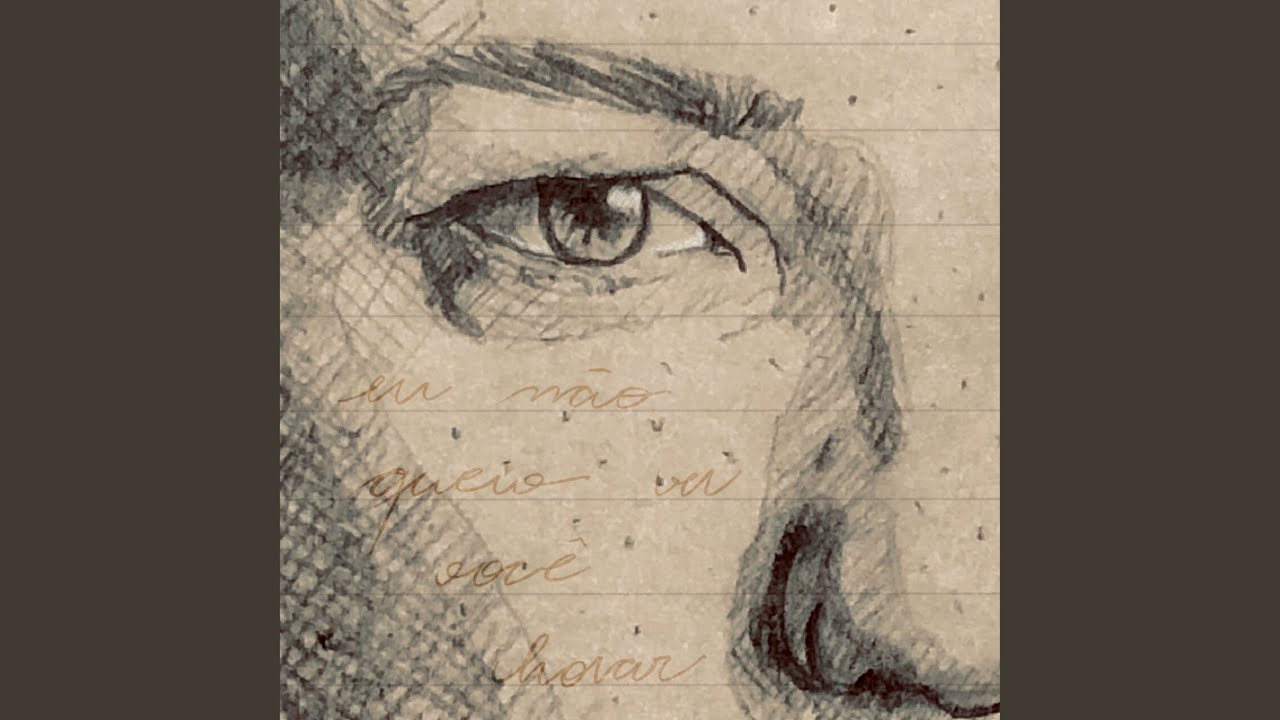 eu não
quero ver
você
chorar